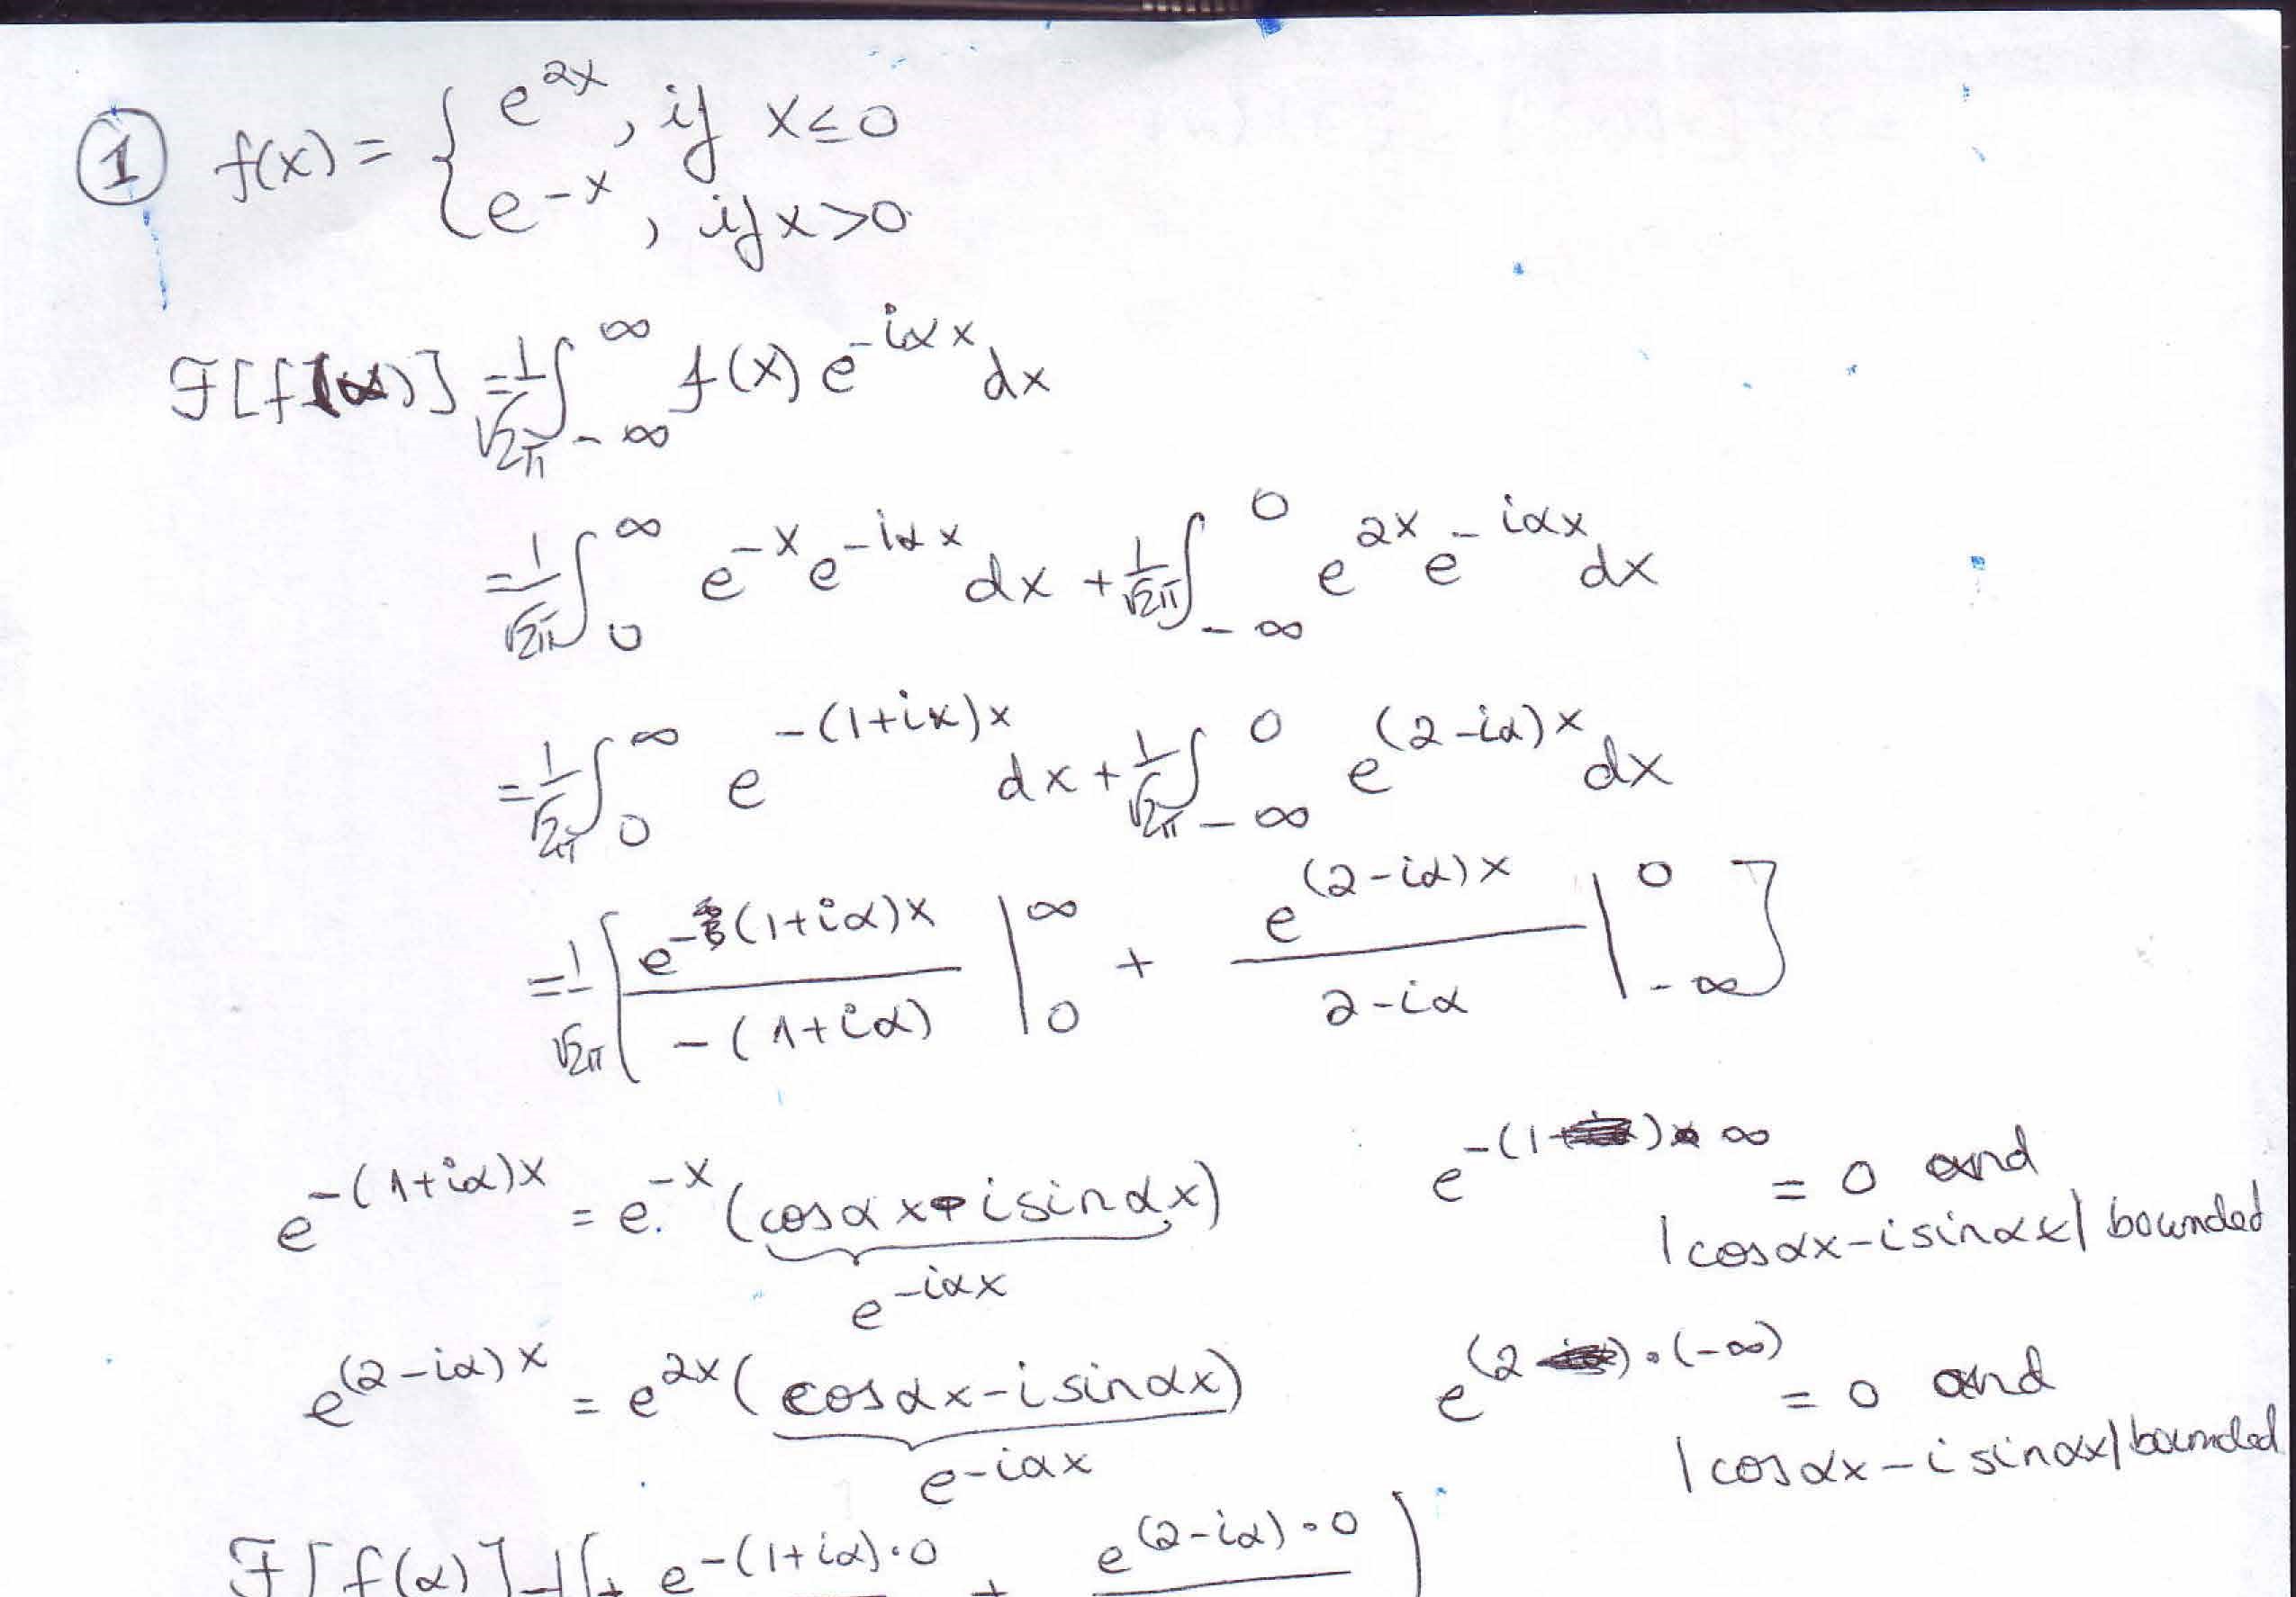 ① f(x) = { e^{2x}, if x ≤ 0
e^{-x}, if x > 0
ℱ[f(α)] = 1/√2π ∫_{-∞}^{∞} f(x) e^{-iαx} dx
= 1/√2π ∫_0^∞ e^{-x} e^{-iαx} dx + 1/√2π ∫_{-∞}^0 e^{2x} e^{-iαx} dx
= 1/√2π ∫_0^∞ e^{-(1+iα)x} dx + 1/√2π ∫_{-∞}^0 e^{(2-iα)x} dx
= 1/√2π [ e^{-(1+iα)x} / -(1+iα) |_0^∞ + e^{(2-iα)x} / 2-iα |_{-∞}^0 ]
e^{-(1+iα)x} = e^{-x} (cosαx - i sinαx) e^{-(1)∞} = 0 and
e^{-iαx} |cosαx - i sinαx| bounded
e^{(2-iα)x} = e^{2x} (cosαx - i sinαx) e^{(2)·(-∞)} = 0 and
e^{-iαx} |cosαx - i sinαx| bounded
ℱ[f(α)] e^{-(1+iα)·0} + e^{(2-iα)·0}